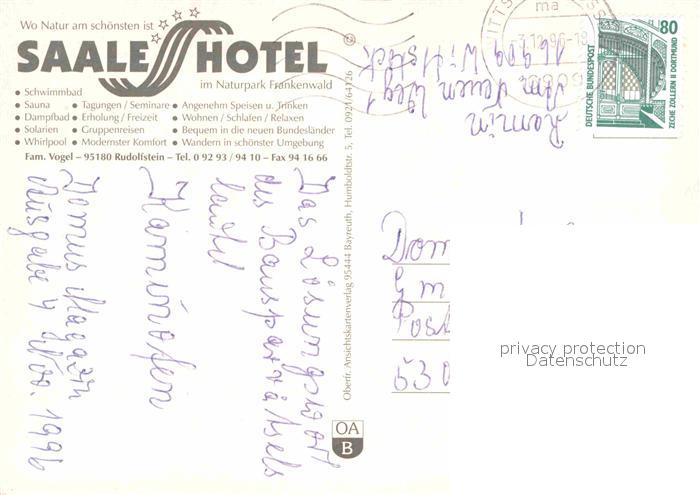 Wo Natur am schönsten ist
SAALE HOTEL
im Naturpark Frankenwald
• Schwimmbad
• Sauna • Tagungen / Seminare • Angenehm Speisen u. Trinken
• Dampfbad • Erholung / Freizeit • Wohnen / Schlafen / Relaxen
• Solarien • Gruppenreisen • Bequem in die neuen Bundesländer
• Whirlpool • Modernster Komfort • Wandern in schönster Umgebung
Fam. Vogel – 95180 Rudolfstein – Tel. 0 92 93 / 94 10 – Fax 94 16 66
Das Lösungswort
des Bausparrätsels
lautet
Kaminofen
Domus Magazin
Ausgabe 4 Nov. 1996
Oberfr. Ansichtskartenverlag 95444 Bayreuth, Humboldtstr. 5, Tel. 0921/64726
OA
B
ma
-3.12.96-18
Am Neuen Weg 1
16909 Wittstock
80
DEUTSCHE BUNDESPOST
ZECHE ZOLLERN II DORTMUND
Dom
Gm
Post
530
privacy protection
Datenschutz